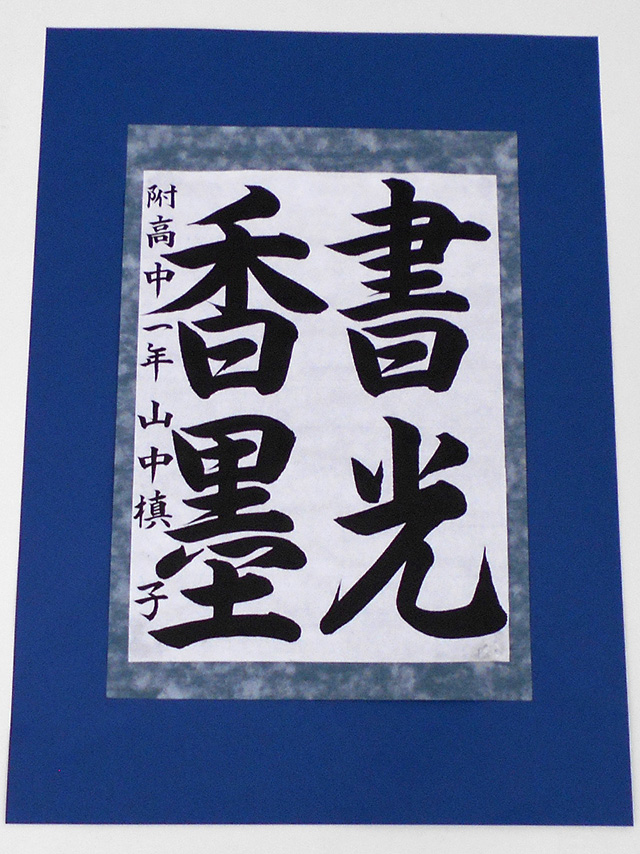 書光
香墨
附高中一年 山中槙子